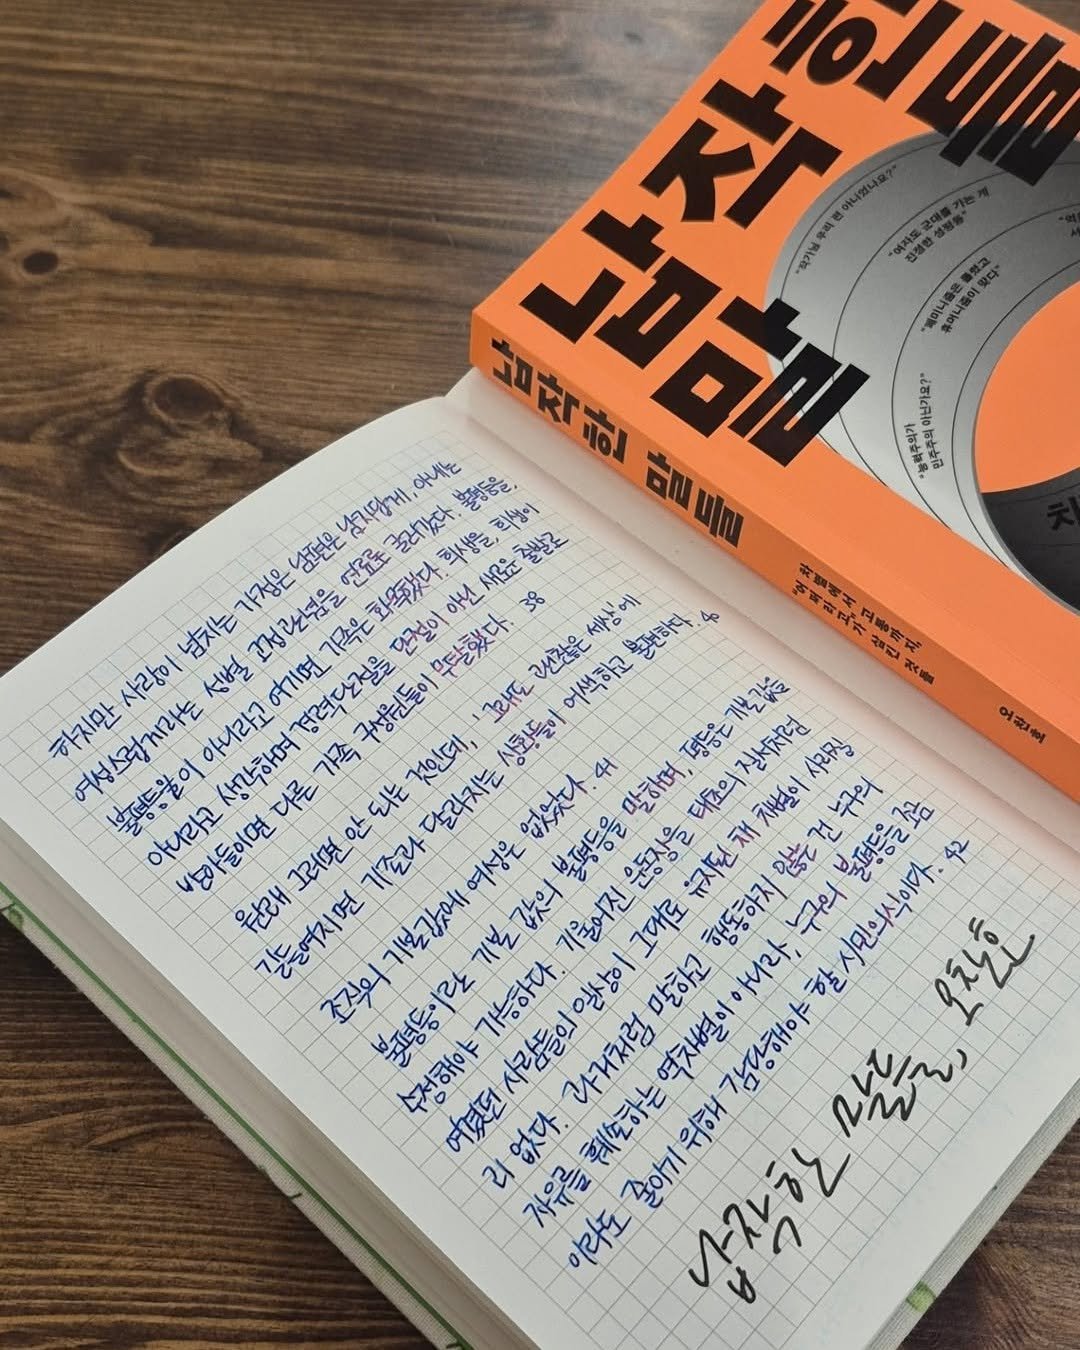 납작한
말들
"작가님 우리 편 아니었나요?"
"여자도 군대를 가는 게
진정한 성평등"
"페미니즘은 틀렸고
휴머니즘이 맞다"
"능력주의가
민주주의 아닌가요?"
납작한 말들
차별에서 고통까지,
"어쩌라고"가 삼킨 것들
오찬호
하지만 사랑이 넘치는 가정은 남편은 남자답게, 아내는
여성스럽게라는 성별 고정관념을 연료로 굴러갔다. 불평등을,
불평등이 아니라고 여기면 가족은 화목했다. 희생을, 희생이
아니라고 생각하면 경력단절을 단절이 아닌 새로운 출발로
받아들이면 다른 가족 구성원들이 무탈했다. 38
원래 그러면 안 되는 것인데, '그래도 괜찮은' 세상에
길들여지면 기존과 달라지는 상황들이 어색하고 불편하다. 40
조직의 기본값에 여성은 없었다. 41
불평등이란 기본 값의 불평등을 말하며, 평등은 기본값을
수정해야 가능하다. 기울어진 운동장을 태초의 질서처럼
여겼던 사람들의 일상이 그대로 유지된 채 차별이 사라질
리 없다. 과거처럼 말하고 행동하지 않는 건 누구의
자유를 훼손하는 역차별이 아니라, 누구의 불평등을 조금
이라도 줄이기 위해 감당해야 할 시민의식이다. 42
납작한 말들, 오찬호